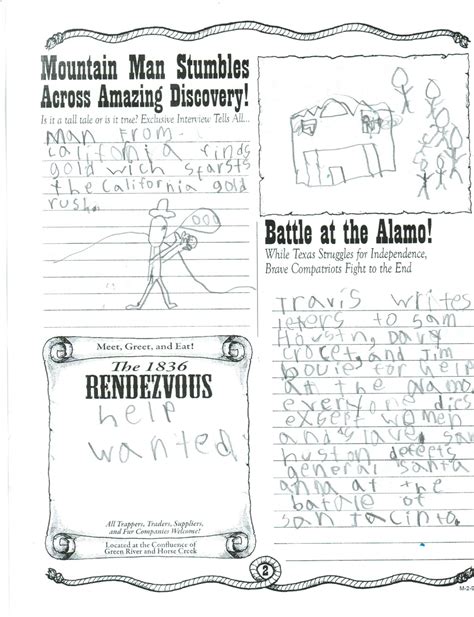 Mountain Man Stumbles
Across Amazing Discovery!
Is it a tall tale or is it true? Exclusive Interview Tells All...
Man From
California finds
gold wich starsts
the California gold
rush.
Meet, Greet, and Eat!
The 1836
RENDEZVOUS
help
wanted
All Trappers, Traders, Suppliers,
and Fur Companies Welcome!
Located at the Confluence of
Green River and Horse Creek
Battle at the Alamo!
While Texas Struggles for Independence,
Brave Compatriots Fight to the End
Travis writes
leters to sam
Houstin, Davy
crocet, and Jim
bouie for help
at the alamo
everyone dies
exsept women
and slave. sam
huston defects
general santa
anna at the
batale of
san Jacinto.
2